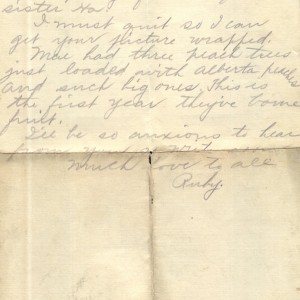 sister
I must quit so I can
get your picture wrapped.
Mae had three peach trees
just loaded with alberta
and such big ones. This is
the first year they've borne
fruit.
I'll be so anxious to hear
from
Much love to all
Ruby.